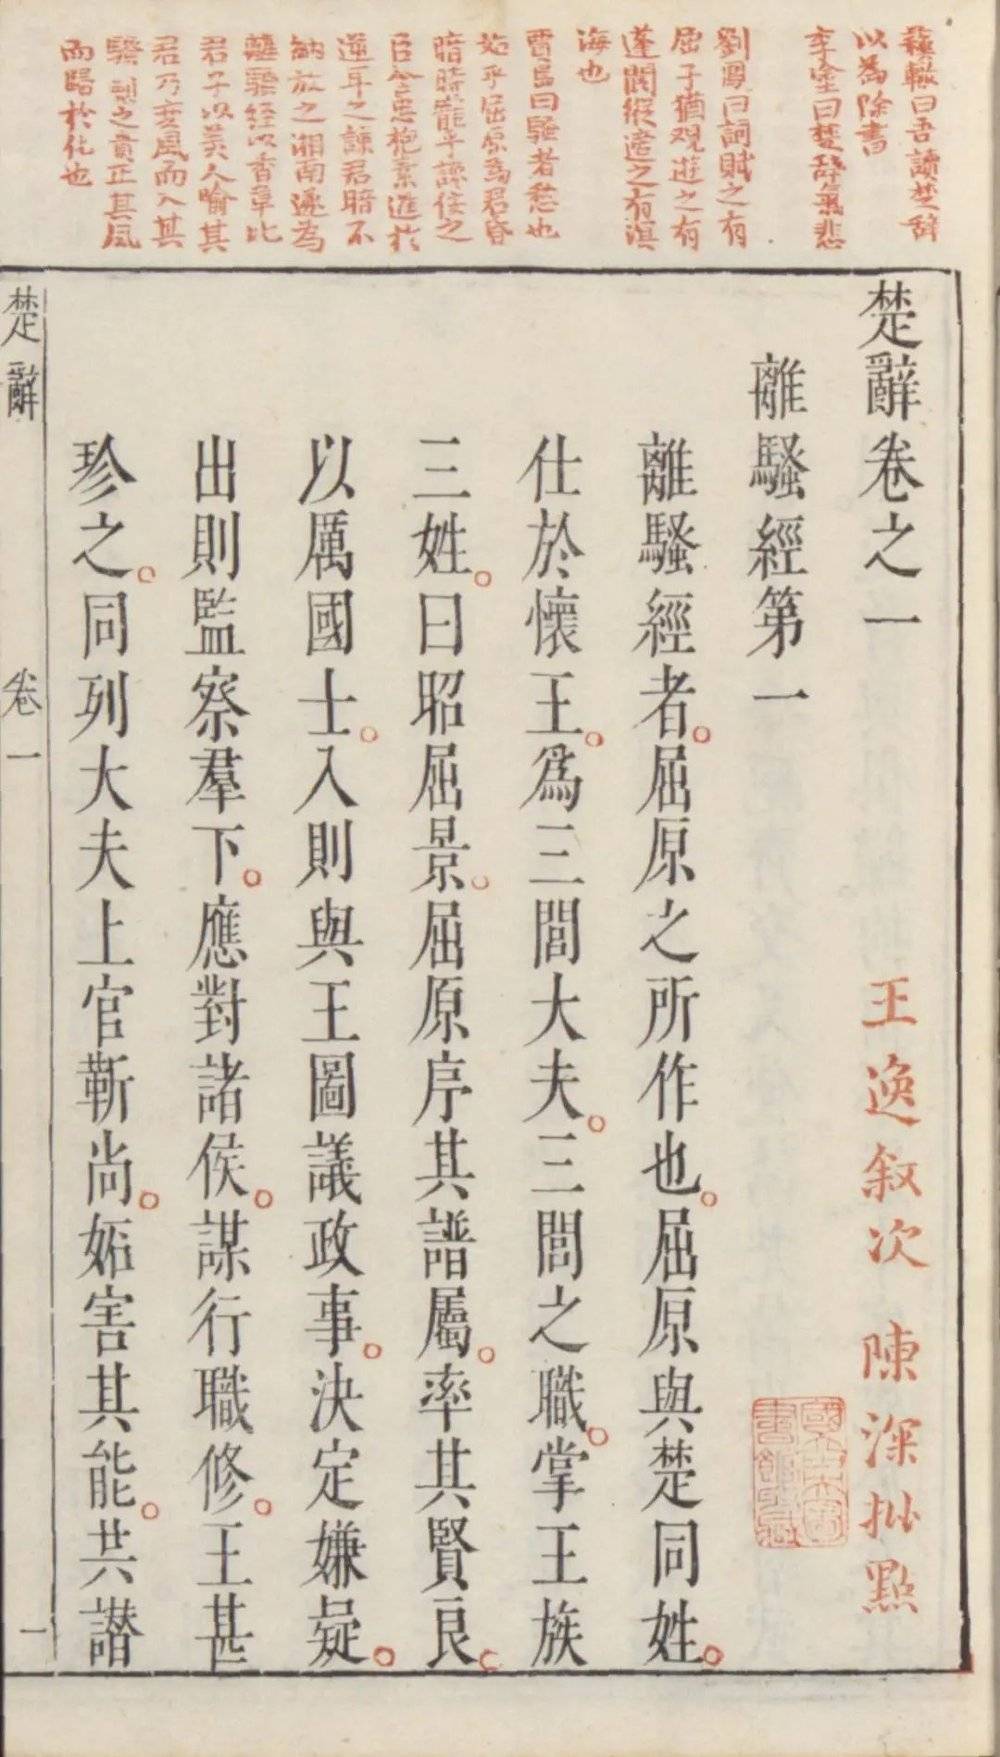 蘓轍曰吾讀楚辭
以為除書
李塗曰楚辭氣悲
劉鳳曰詞賦之有
屈子猶觀遊之有
蓬閬縱適之有溟
海也
賈島曰騷者愁也
始乎屈原為君昏
暗時寵乎讒佞之
臣含忠抱素進於
逆耳之諫君暗不
納放之湘南遂為
離騷經以香草比
君子以美人喻其
君乃變風而入其
騷刺之貴正其風
而歸於化也
楚辭卷之一
王逸叙次 陳深批點
離騷經第一
離騷經者屈原之所作也屈原與楚同姓
仕於懷王爲三閭大夫三閭之職掌王族
三姓曰昭屈景屈原序其譜屬率其賢良
以厲國士入則與王圖議政事決定嫌疑
出則監察羣下應對諸侯謀行職修王甚
珍之同列大夫上官靳尚妬害其能共譖
楚辭
卷一
一